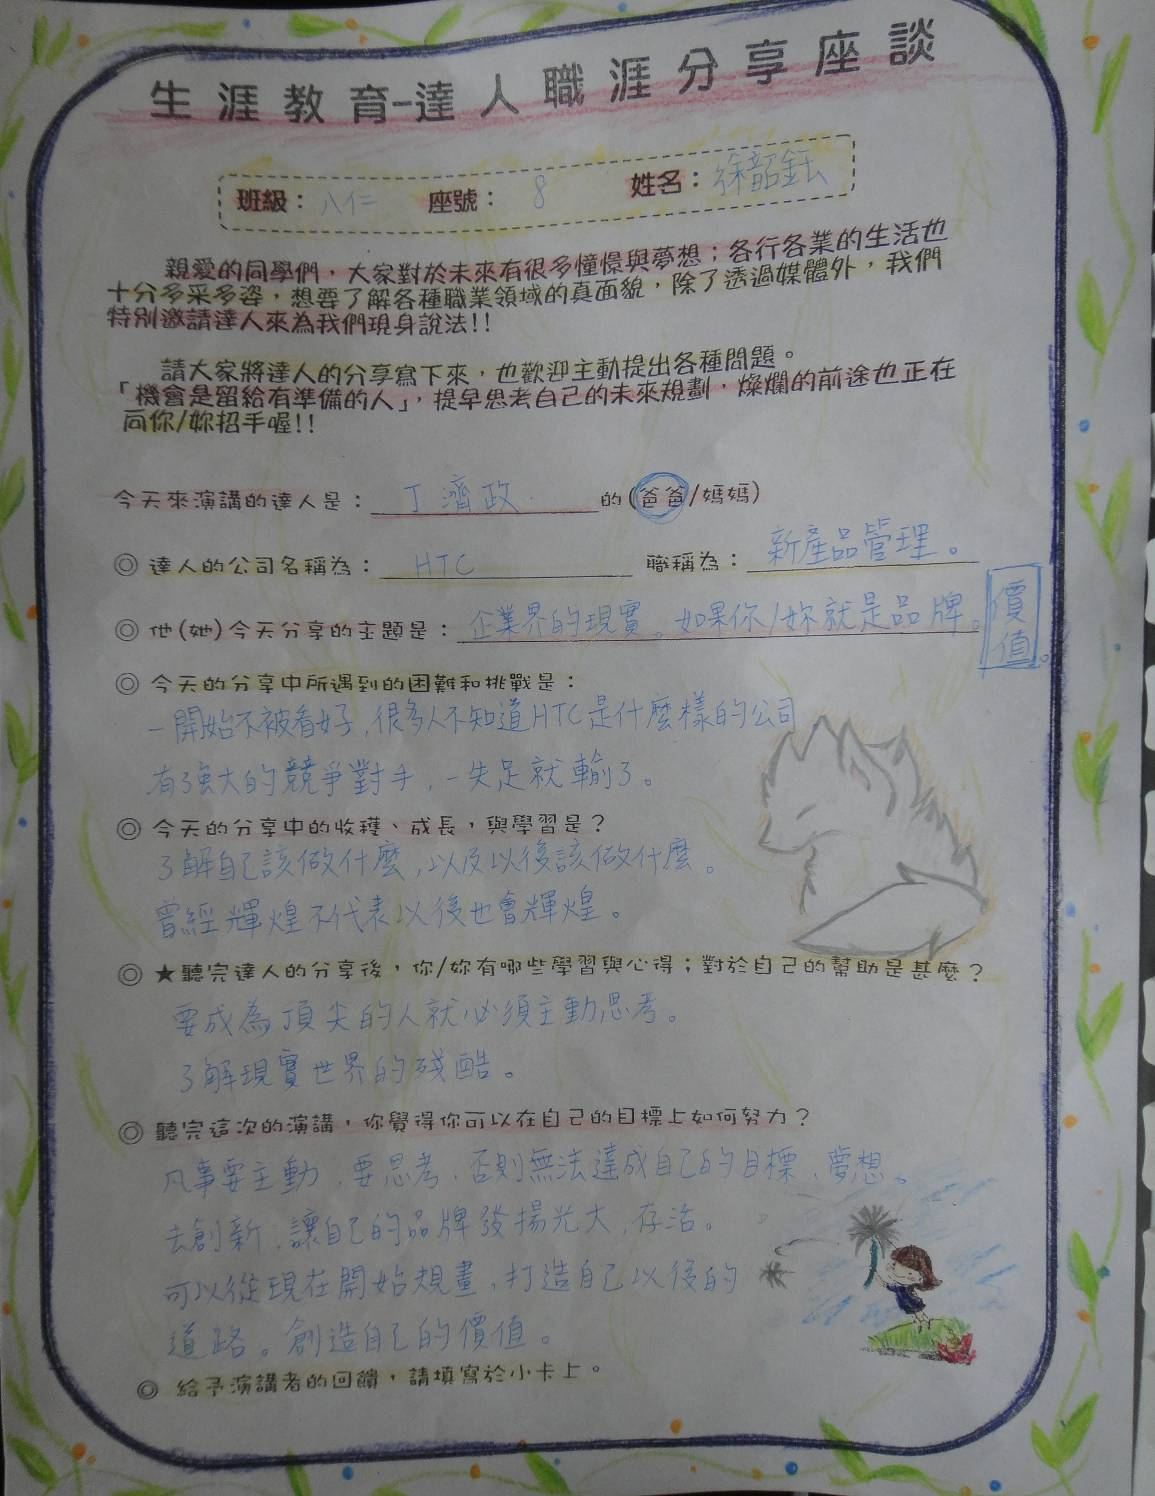 生涯教育-達人職涯分享座談
班級：八仁 座號：8 姓名：徐韶鈺
親愛的同學們，大家對於未來有很多憧憬與夢想；各行各業的生活也
十分多采多姿，想要了解各種職業領域的真面貌，除了透過媒體外，我們
特別邀請達人來為我們現身說法!!
請大家將達人的分享寫下來，也歡迎主動提出各種問題。
「機會是留給有準備的人」，提早思考自己的未來規劃，燦爛的前途也正在
向你/妳招手喔!!
今天來演講的達人是：丁濟政 的(爸爸/媽媽)
◎ 達人的公司名稱為：HTC 職稱為：新產品管理。
◎ 他(她)今天分享的主題是：企業界的現實。如果你/妳就是品牌。價值。
◎ 今天的分享中所遇到的困難和挑戰是：
一開始不被看好,很多人不知道HTC是什麼樣的公司
有3強大的競爭對手,一失足就輸了。
◎ 今天的分享中的收穫、成長，與學習是？
了解自己該做什麼,以及以後該做什麼。
曾經輝煌不代表以後也會輝煌。
◎ ★聽完達人的分享後，你/妳有哪些學習與心得；對於自己的幫助是甚麼？
要成為頂尖的人就必須主動思考。
了解現實世界的殘酷。
◎ 聽完這次的演講，你覺得你可以在自己的目標上如何努力？
凡事要主動、要思考,否則無法達成自己的目標、夢想。
去創新,讓自己的品牌發揚光大,存活。
可以從現在開始規畫,打造自己以後的
道路。創造自己的價值。
◎ 給予演講者的回饋，請填寫於小卡上。